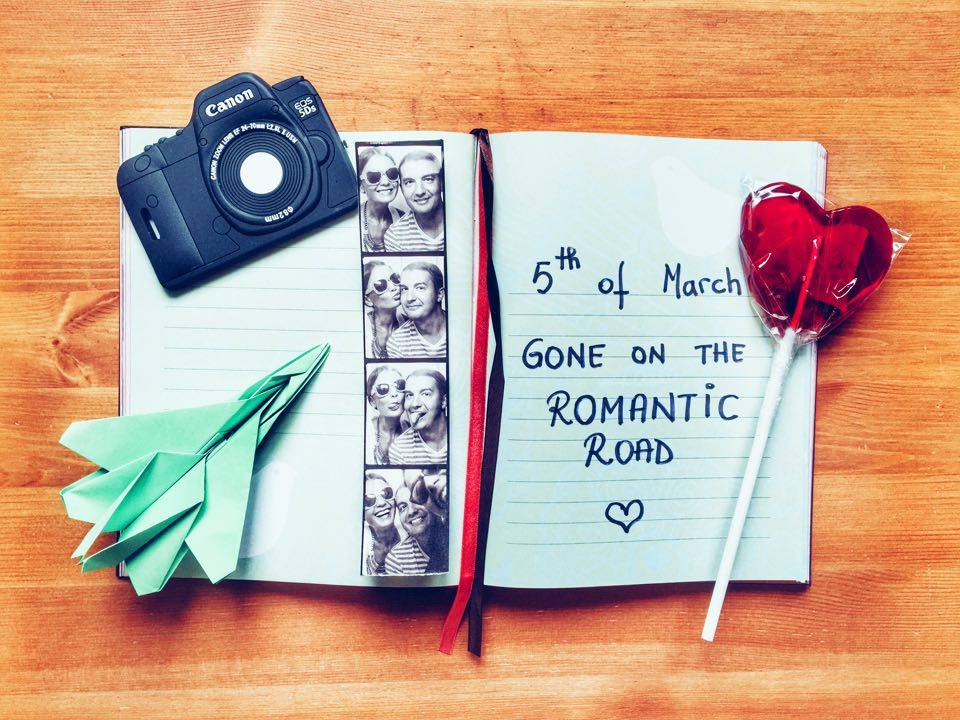 Canon
EOS
5Ds
CANON ZOOM LENS EF 24-70mm 1:2.8L II USM
Ø82mm
5th of March
GONE ON THE
ROMANTIC
ROAD